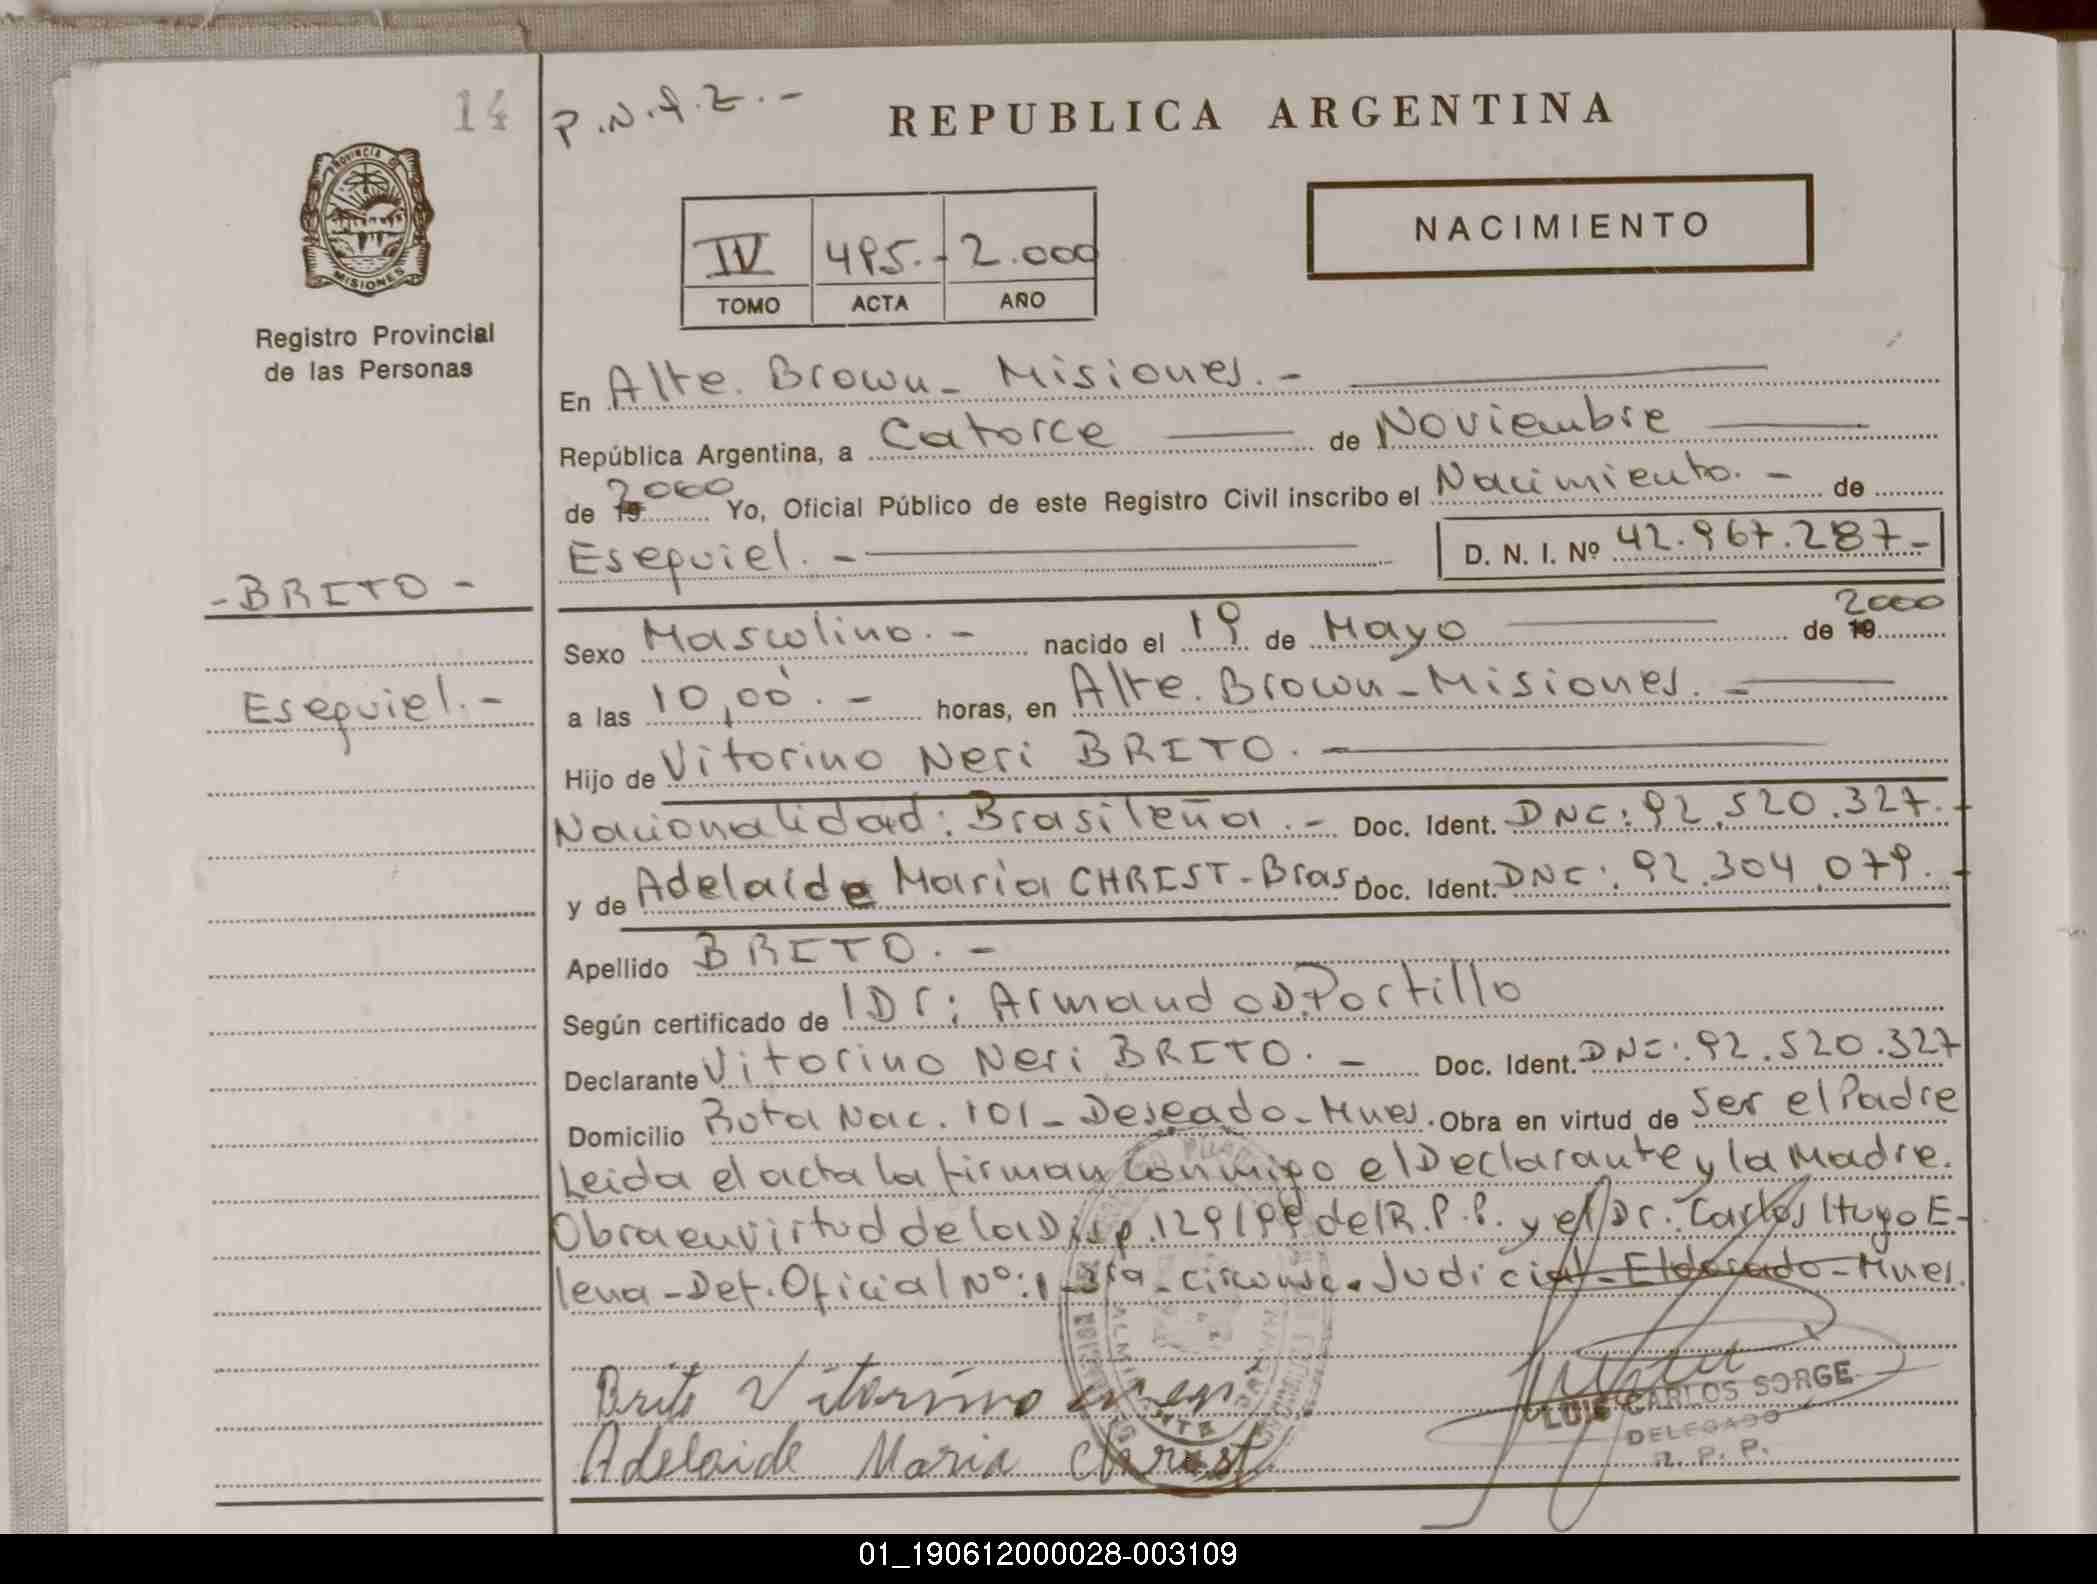 14
P.N.A.Z.-
REPUBLICA ARGENTINA
PROVINCIA DE
MISIONES
NACIMIENTO
IV 495.- 2.000
TOMO ACTA AÑO
Registro Provincial
de las Personas
En Alte. Brown - Misiones.-
República Argentina, a Catorce de Noviembre
de 2000 Yo, Oficial Público de este Registro Civil inscribo el Nacimiento.- de
Esequiel.- D. N. I. Nº 42.967.287-
-BRITO-
Sexo Masculino.- nacido el 19 de Mayo de 2000
Esequiel.-
a las 10,00.- horas, en Alte. Brown-Misiones.-
Hijo de Vitorino Neri BRITO.-
Nacionalidad: Brasileña.- Doc. Ident. DNI: 92.520.327.-
y de Adelaide Maria CHRIST-Bras. Doc. Ident. DNI: 92.304.079.-
Apellido BRITO.-
Según certificado de lDr: Armando D. Portillo
Declarante Vitorino Neri BRITO.- Doc. Ident. DNI: 92.520.327
Domicilio Ruta Nac. 101-Deseado-Mnes. Obra en virtud de Ser el Padre
Leida el acta la firman Conmigo el Declarante y la Madre.
Obra en virtud de la Disp. 129/99 del R.P.P. y el Dr. Carlos Hugo E-
lena-Def. Oficial Nº: 1-3ra-circunsc. Judicial-Eldorado-Mnes.
Brito Vitorino neri
Adelaide Maria Christ
LUIS CARLOS SORGE
DELEGADO
R. P. P.
01_190612000028-003109